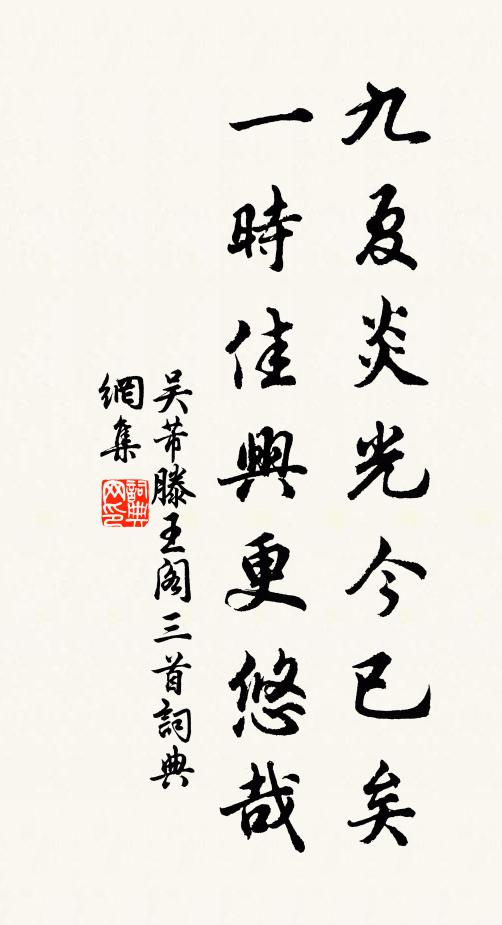 九夏炎光今已矣
一時佳興更悠哉
吴芾滕王阁三首詞典
網集
詞典网印